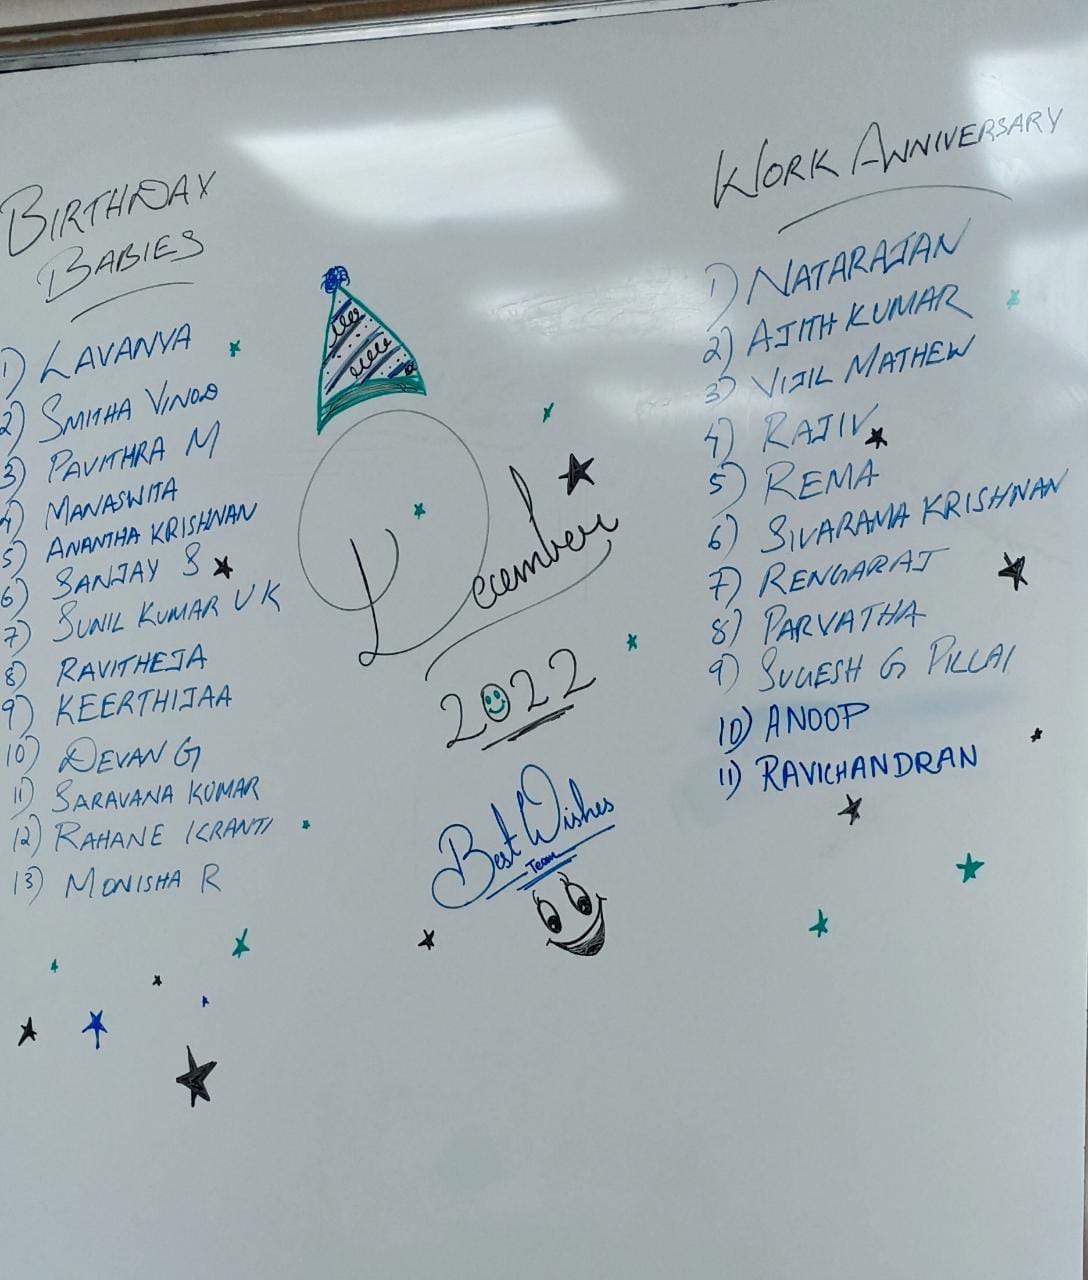 BIRTHDAY
BABIES
1) LAVANYA
2) SMITHA VINOD
3) PAVITHRA M
4) MANASWITA
5) ANANTHA KRISHNAN
6) SANJAY S
7) SUNIL KUMAR U K
8) RAVITHEJA
9) KEERTHIJAA
10) DEVAN G
11) SARAVANA KUMAR
12) RAHANE KRANTI
13) MONISHA R
December
2022
Best Wishes
Team
WORK ANNIVERSARY
1) NATARAJAN
2) AJITH KUMAR
3) VIJIL MATHEW
4) RAJIV
5) REMA
6) SIVARAMA KRISHNAN
7) RENGARAJ
8) PARVATHA
9) SUGESH G PILLAI
10) ANOOP
11) RAVICHANDRAN